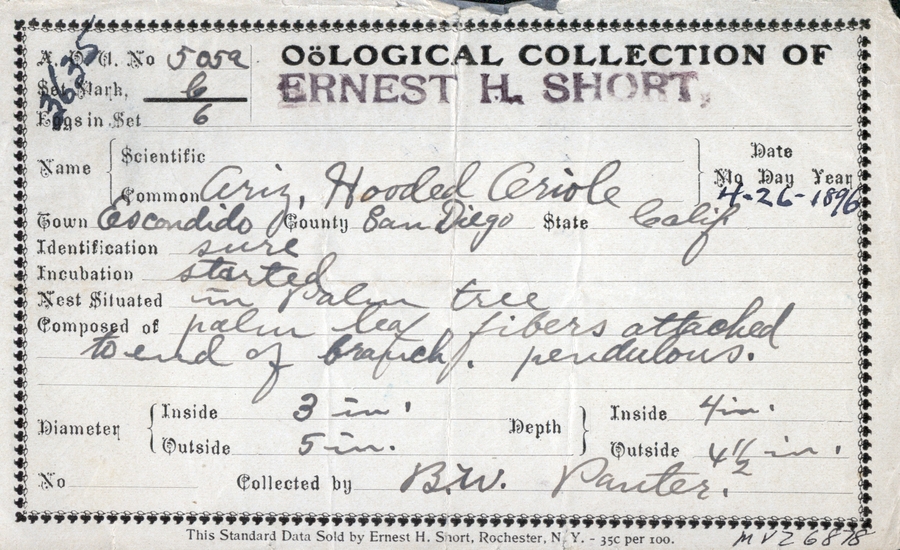 A. O. U. No 505a
OöLOGICAL COLLECTION OF
Set Mark, 6
ERNEST H. SHORT,
Eggs in Set 6
Name
Scientific
Common Ariz, Hooded Oriole
Date
Mo Day Year
4-26-1896
Town Escondido County San Diego State Calif
Identification sure
Incubation started
Nest Situated in Palm tree
Composed of palm leaf fibers attached
to end of branch. pendulous.
Diameter
Inside 3 in.
Outside 5 in.
Depth
Inside 4 in.
Outside 4 1/2 in.
No Collected by B.W. Panter.
This Standard Data Sold by Ernest H. Short, Rochester, N. Y. - 35c per 100.
MVZ 6878